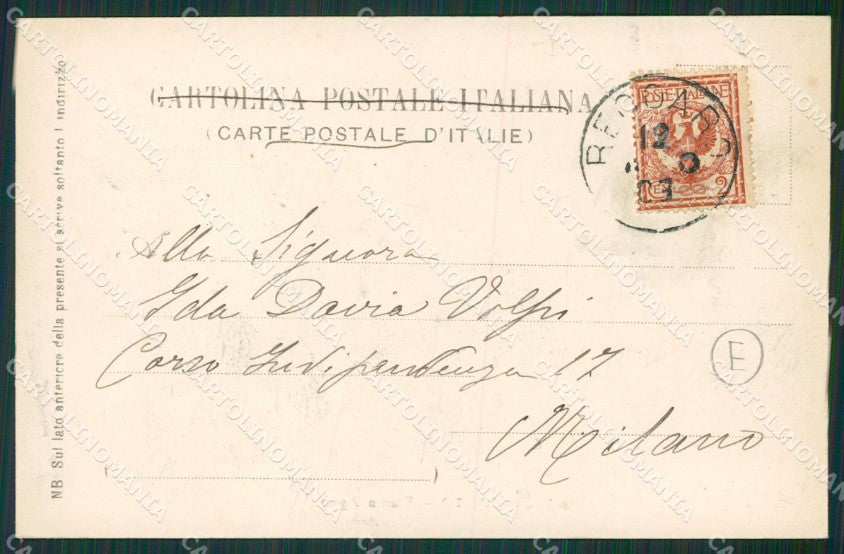 CARTOLINA POSTALE ITALIANA
(CARTE POSTALE D'ITALIE)
POSTE ITALIANE
2
RECOARO
12
03
Alla Signora
Ida Davia Volpi
Corso Indipendenza 17
Milano
E
NB. Sul lato anteriore della presente si scrive soltanto l'indirizzo
CARTOLINOMANIA